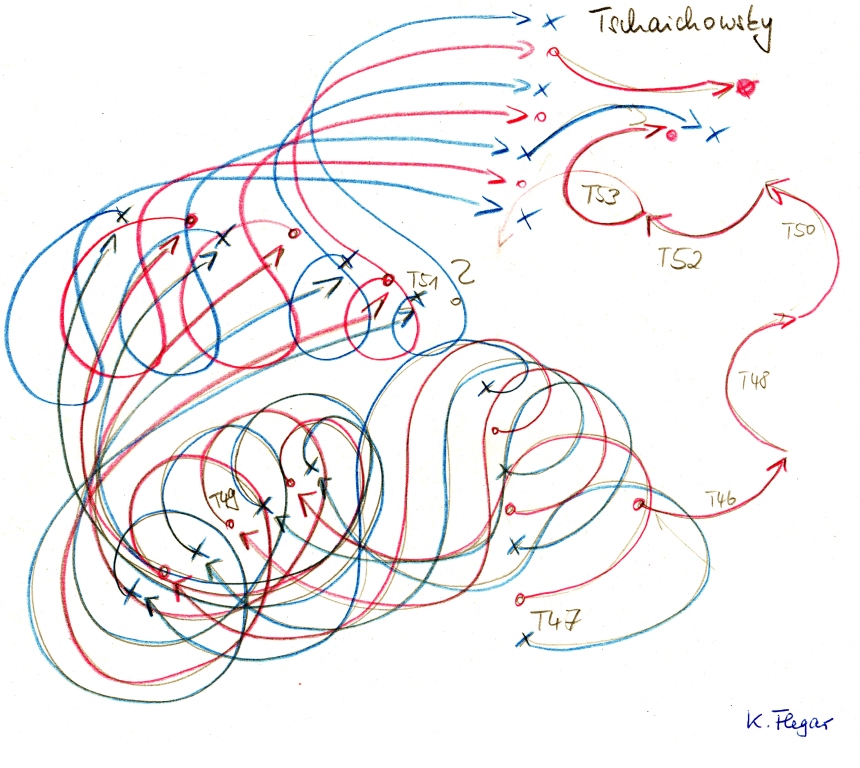 Tschaichowsky
T53
T52
T50
T51 2
T48
T49
T46
T47
K. Flegar